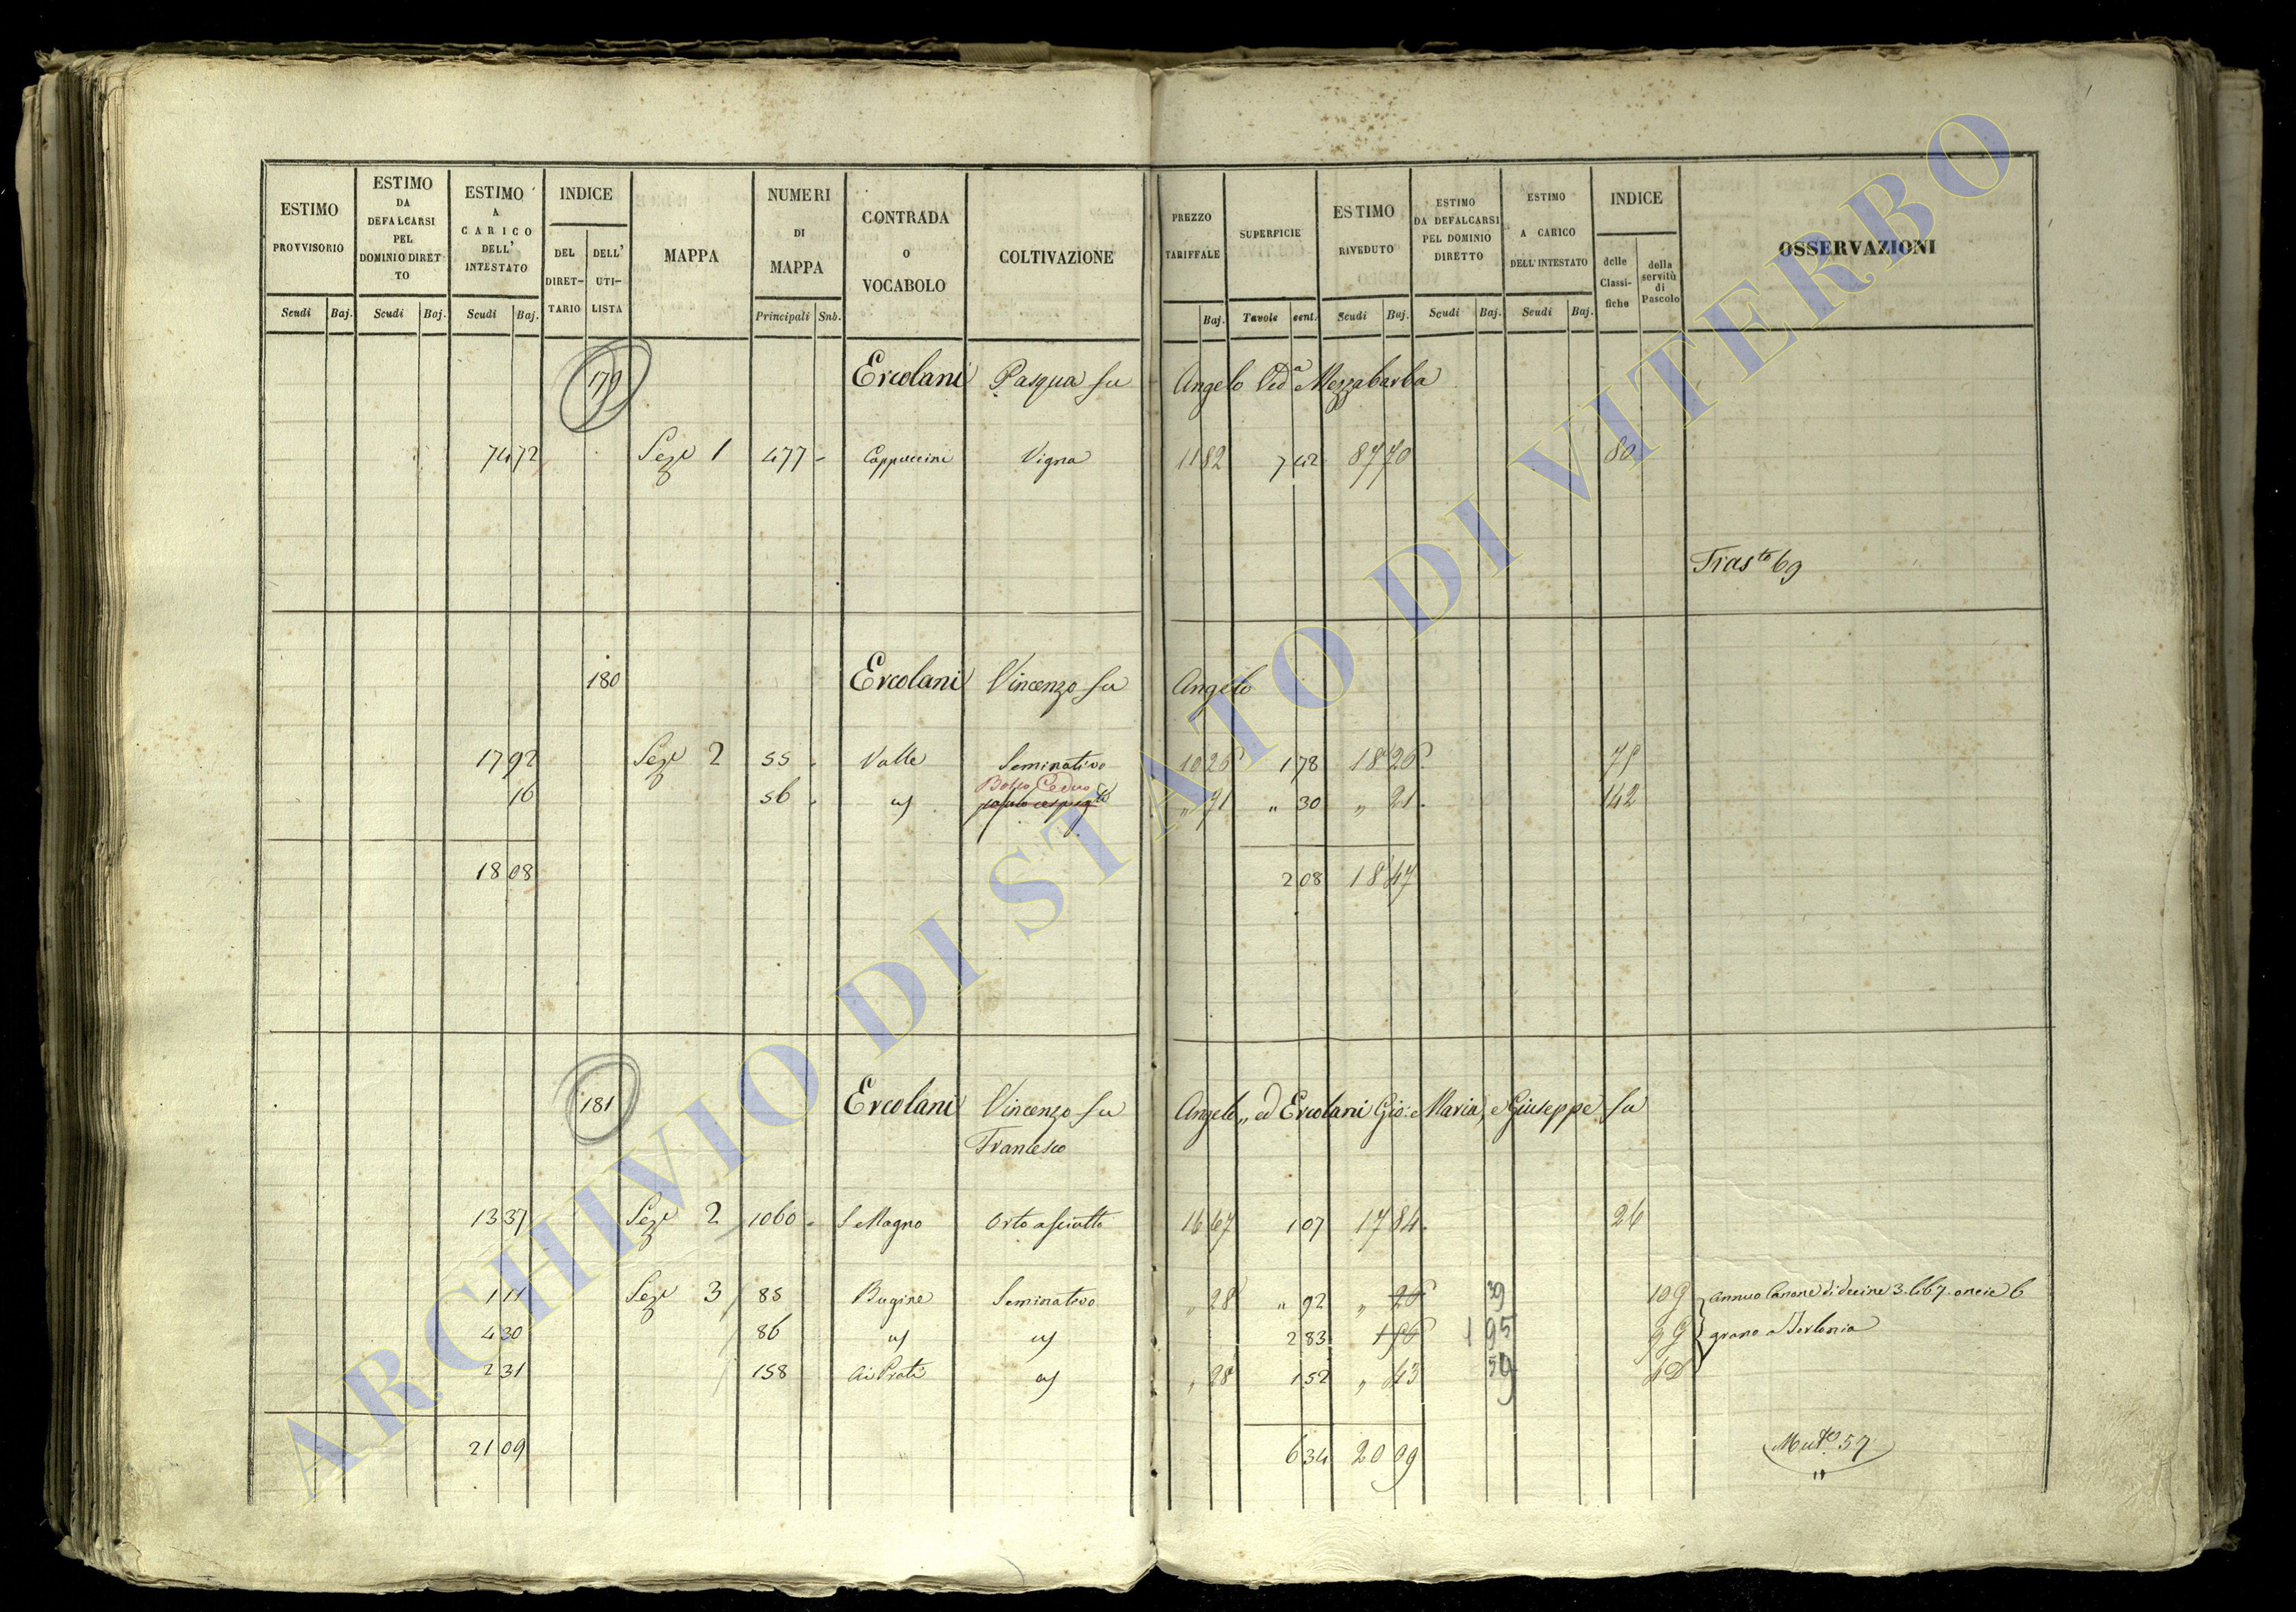 ESTIMO PROVVISORIO Scudi Baj.
ESTIMO DA DEFALCARSI PEL DOMINIO DIRETTO Scudi Baj.
ESTIMO A CARICO DELL' INTESTATO Scudi Baj.
INDICE DEL DIRETTARIO DELL' UTILISTA
MAPPA
NUMERI DI MAPPA Principali Sub.
CONTRADA O VOCABOLO
COLTIVAZIONE
PREZZO TARIFFALE Baj.
SUPERFICIE Tavole cent.
ESTIMO RIVEDUTO Scudi Baj.
ESTIMO DA DEFALCARSI PEL DOMINIO DIRETTO Scudi Baj.
ESTIMO A CARICO DELL' INTESTATO Scudi Baj.
INDICE delle Classifiche della servitù di Pascolo
OSSERVAZIONI
179 Ercolani Pasqua fu Angelo Ved.a Mezzabarba
74 72 Sez.e 1 477 - Cappuccini Vigna 11 82 7 42 87 70 80
Tras.to 69
180 Ercolani Vincenzo fu Angelo
17 92 Sez.e 2 55 Valle Seminativo 10 26 1 78 18 26 75
Bosco Ceduo
16 56 " 71 " 30 " 21 142
18 08 2 08 18 47
181 Ercolani Vincenzo fu Angelo, ed Ercolani Gio: Maria, e Giuseppe fu
Francesco
13 37 Sez.e 2 1060 - S Magno Orto asciutto 16 67 1 07 17 84 26
1 11 Sez.e 3 85 Bugine Seminativo " 28 " 92 " 26 39 109 annuo Canone di decine 3. lib 7. oncie 6
4 30 86 2 83 1 56 1 95 99 grano a Torlonia
2 31 158 Ai Prati " 28 1 52 " 43 59
21 09 6 34 20 09 Mut.e 57
ARCHIVIO DI STATO DI VITERBO